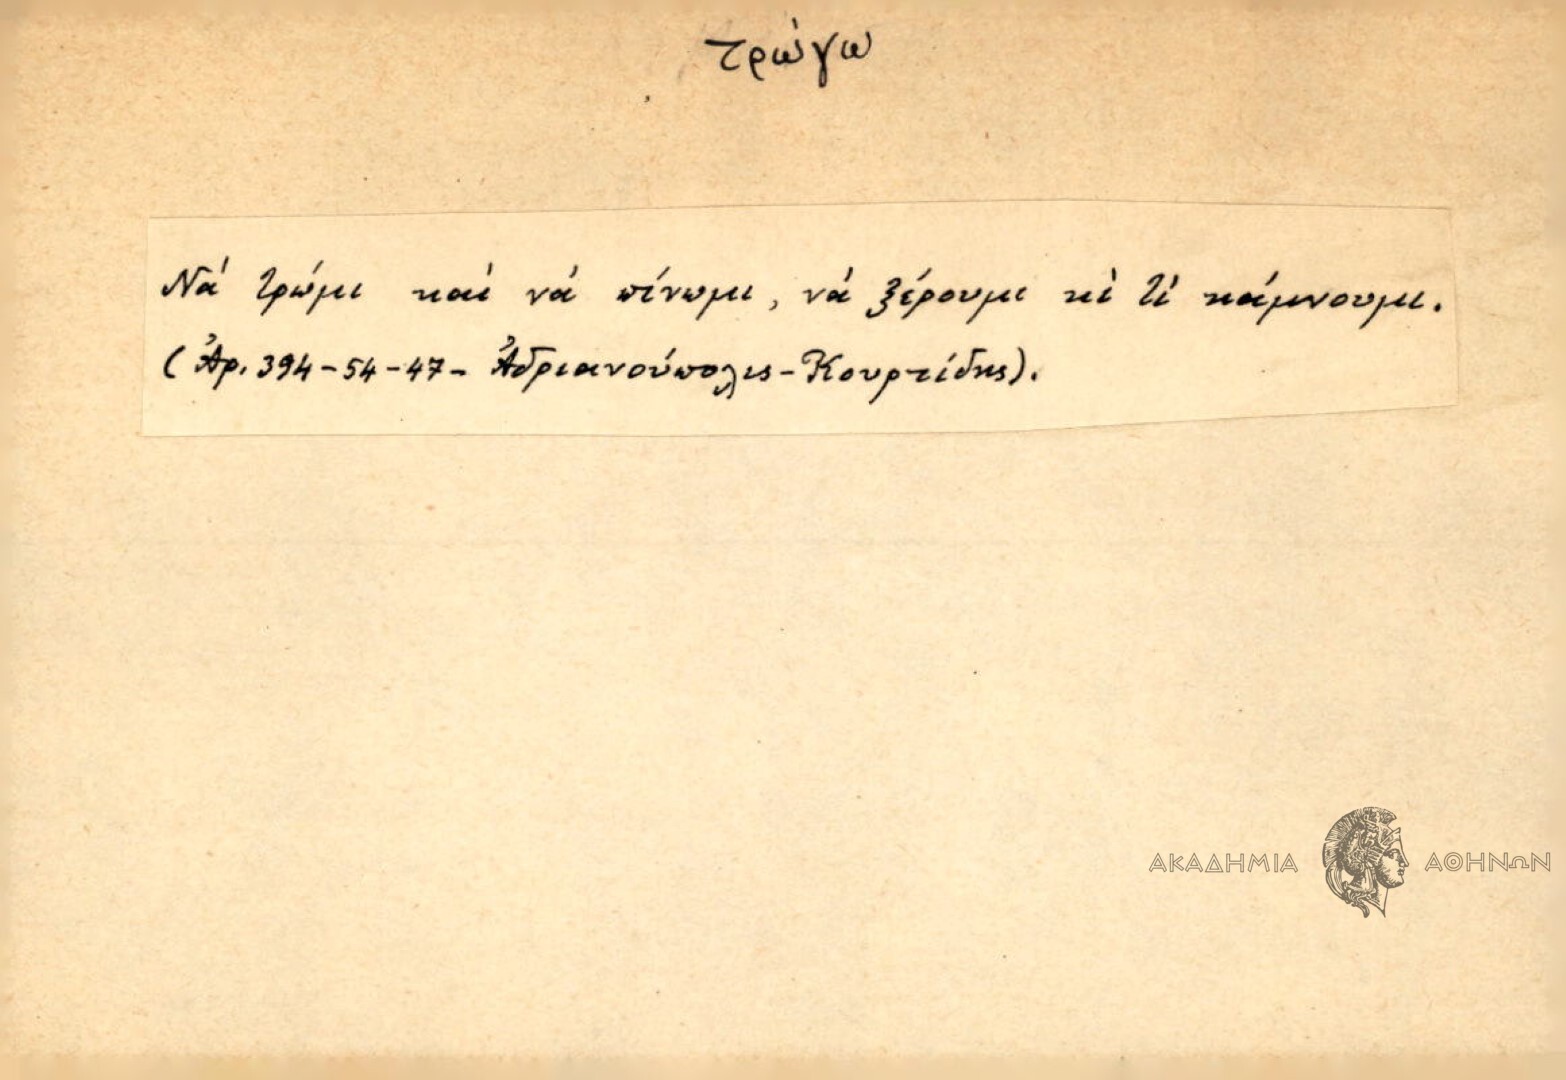 τρώγω
Νά τρώμι καί νά πίνωμι, νά ξέρουμι κὶ τί κάμνουμι.
(Ἀρ. 394-54-47- Ἀδριανούπολις-Κουρτίδης).
ΑΚΑΔΗΜΙΑ ΑΘΗΝΩΝ